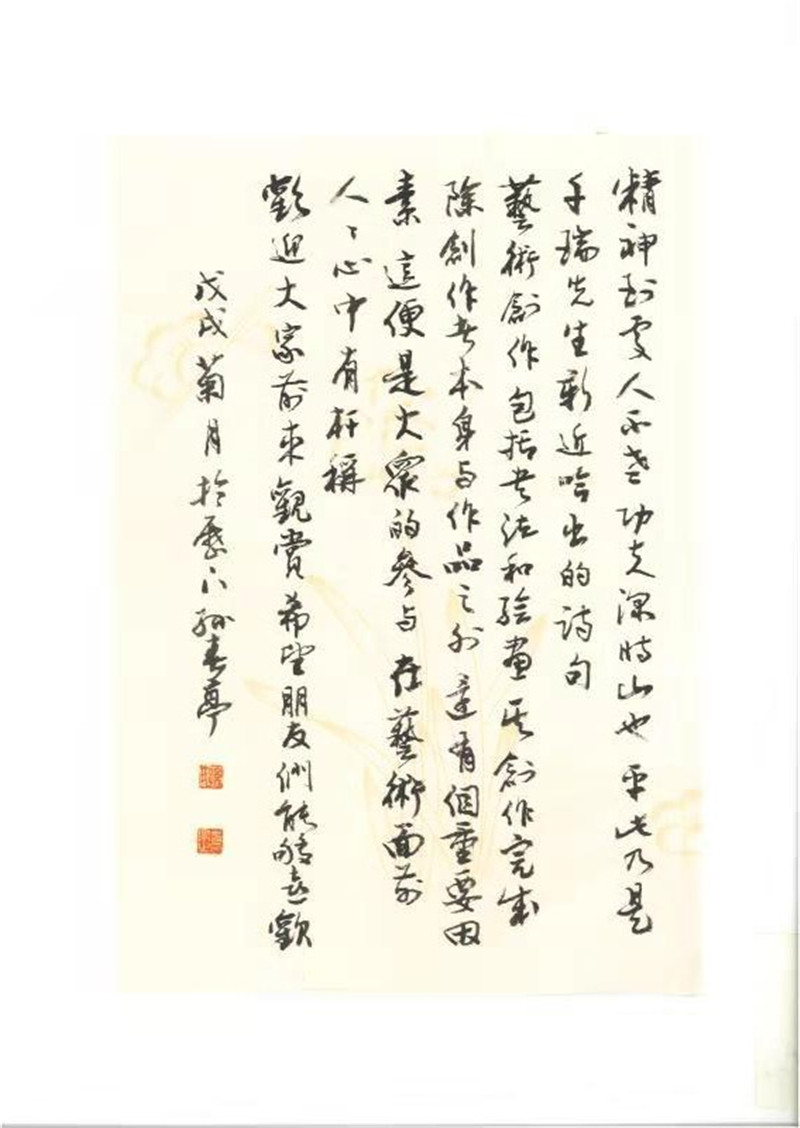 精神到處人不老功夫深時山也平此乃是
瑞先生新近吟出的詩句
藝術創作包括书法和绘畫其創作完成
除創作者本身与作品之外還有個重要因
素這便是大眾的參与在藝術面前
人々心中有杆稱
歡迎大家前来觀賞希望朋友們能够喜歡
戊戌菊月於歷下孫春亭